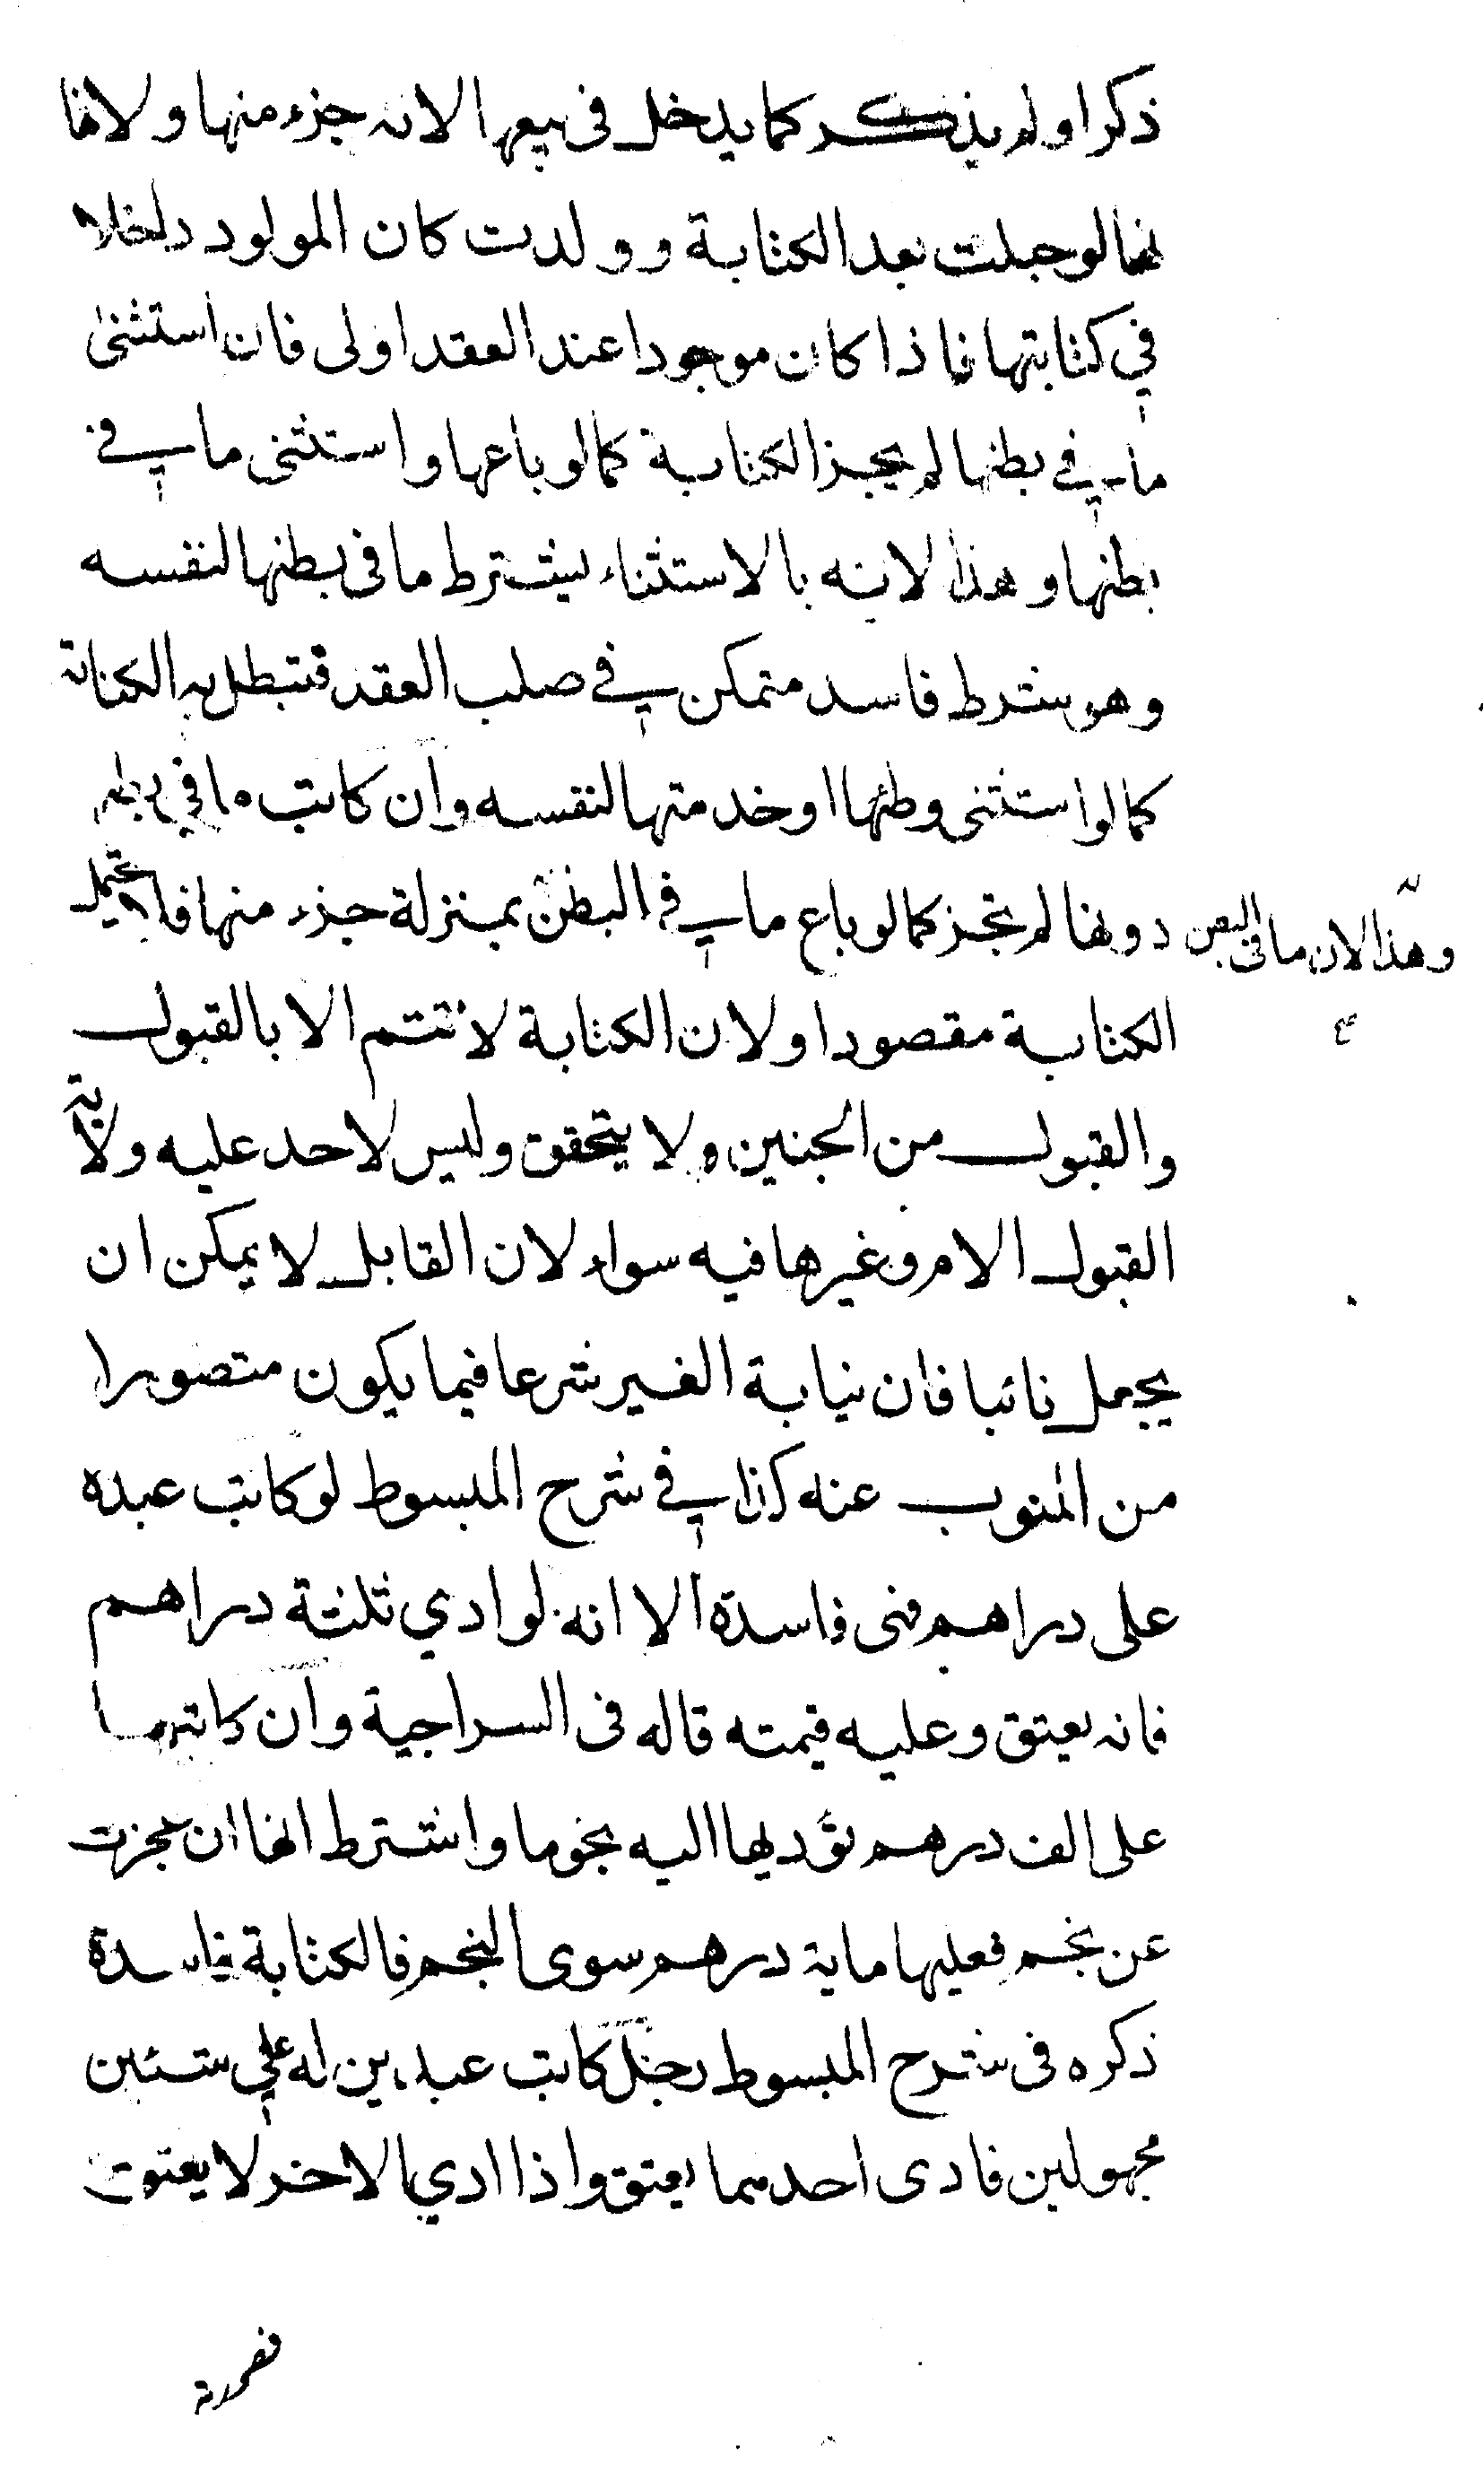 ذكرا ولم يذكر كما يدخل في بيعها لانه جزء منها ولانها
انها لو حبلت بعد الكتابة وولدت كان المولود داخلا
في كتابتها فاذا كان موجودا عند العقد اولى فان استثنى
ما في بطنها لم يجز الكتابة كما لو باعها واستثنى ما في
بطنها وهذا لانه بالاستثناء يشترط ما في بطنها لنفسه
وهو شرط فاسد متمكن في صلب العقد فتبطل به الكتابة
كما لو استثنى وطئها او خدمتها لنفسه وان كاتب ما في بطنها
دونها لم تجز كما لو باع ما في البطن بمنزلة جزء منها فلا يحتمل
وهذا لان ما في البطن
الكتابة مقصودا ولان الكتابة لا تتم الا بالقبول
والقبول من الجنين ولا يتحقق وليس لاحد عليه ولاية
القبول الام وغيرها فيه سواء لان القابل لا يمكن ان
يجعل نائبا فان نيابة الغير شرعا فيما يكون متصورا
من المنوب عنه كذا في شرح المبسوط لو كاتب عبده
على دراهم فهي فاسدة الا انه لو ادي ثلثة دراهم
فانه يعتق وعليه قيمته قاله في السراجية وان كاتبها
على الف درهم تؤديها اليه نجوما واشترط انها ان عجزت
عن نجم فعليها ماية درهم سوى النجم فالكتابة فاسدة
ذكره في شرح المبسوط رجل كاتب عبدين له على شيئين
مجهولين فادى احدهما يعتق واذا ادي الاخر لا يعتق